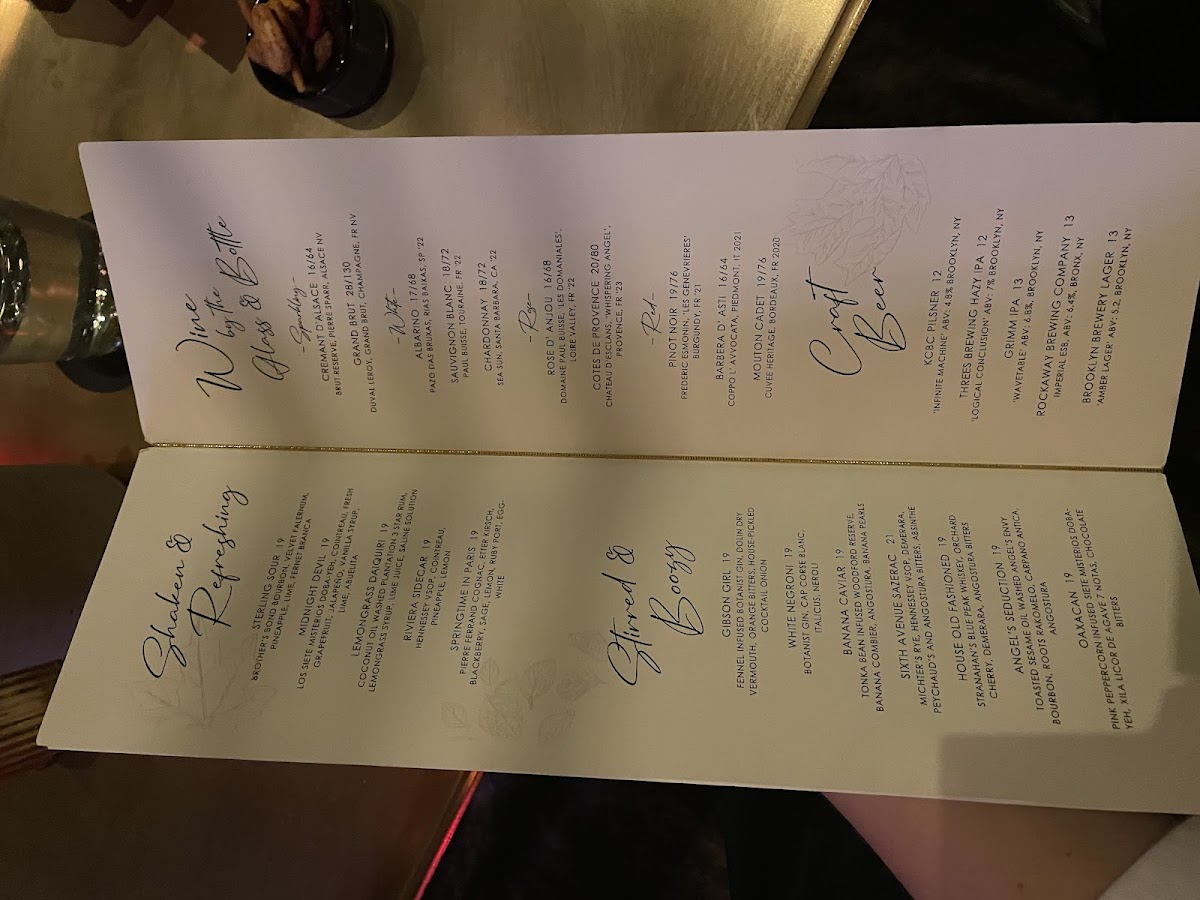 Shaken &
Refreshing
STERLING SOUR 19
BROTHER'S BOND BOURBON, VELVET FALERNUM,
PINEAPPLE, LIME, FERNET BRANCA
MIDNIGHT DEVIL 19
LOS SIETE MISTERIOS DOBA-YEH, COINTREAU, FRESH
GRAPEFRUIT, JALAPEÑO, LIME, VANILLA SYRUP,
LIME, ABUELITA
LEMONGRASS DAIQUIRI 19
COCONUT OIL WASHED PLANTATION 3 STAR RUM,
LEMONGRASS SYRUP, LIME JUICE, SALINE SOLUTION
RIVIERA SIDECAR 19
HENNESSEY VSOP, COINTREAU,
PINEAPPLE, LEMON
SPRINGTIME IN PARIS 19
PIERRE FERRAND COGNAC, ETTER KIRSCH,
BLACKBERRY, SAGE, LEMON, RUBY PORT, EGG-
WHITE
Stirred &
Boozy
GIBSON GIRL 19
FENNEL INFUSED BOTANIST GIN, DOLIN DRY
VERMOUTH, ORANGE BITTERS, HOUSE-PICKLED
COCKTAIL ONION
WHITE NEGRONI 19
BOTANIST GIN, CAP CORSE BLANC,
ITALICUS, NEROLI
BANANA CAVIAR 19
TONKA BEAN INFUSED WOODFORD RESERVE,
BANANA COMBIER, ANGOSTURA, BANANA PEARLS
SIXTH AVENUE SAZERAC 21
MICHTER'S RYE, HENNESSEY VSOP, DEMERARA,
PEYCHAUD'S AND ANGOSTURA BITTERS, ABSINTHE
HOUSE OLD FASHIONED 19
STRANAHAN'S BLUE PEAK WHISKEY, ORCHARD
CHERRY, DEMERARA, ANGOSTURA BITTERS
ANGEL'S SEDUCTION 19
TOASTED SESAME OIL WASHED ANGEL'S ENVY
BOURBON, ROOTS RAKOMELO, CARPANO ANTICA,
ANGOSTURA
OAXACAN 19
PINK PEPPERCORN INFUSED SIETE MISTERIOS DOBA-
YEH, XILA LICOR DE AGAVE 7 NOTAS, CHOCOLATE
BITTERS
Wine
by the
Glass & Bottle
-Sparkling-
CREMANT D'ALSACE 16/64
BRUT RESERVE, PIERRE SPARR, ALSACE NV
GRAND BRUT 28/130
DUVAL LEROY, GRAND BRUT, CHAMPAGNE, FR NV
-White-
ALBARINO 17/68
PAZO DAS BRUXAS, RIAS BAIXAS, SP '22
SAUVIGNON BLANC 18/72
PAUL BUISSE, TOURAINE, FR '22
CHARDONNAY 18/72
SEA SUN, SANTA BARBARA, CA '22
-Rose-
ROSE D' ANJOU 16/68
DOMAINE PAUL BUISSE, 'LES DOMANIALES',
LOIRE VALLEY, FR '22
COTES DE PROVENCE 20/80
CHATEAU D'ESCLANS, 'WHISPERING ANGEL',
PROVENCE, FR '23
-Red-
PINOT NOIR 19/76
FREDERIC ESMONIN, 'LES GENEVRIERES'
BURGUNDY, FR '21
BARBERA D' ASTI 16/64
COPPO L' AVVOCATA, PIEDMONT, IT 2021
MOUTON CADET 19/76
CUVEE HERITAGE, BORDEAUX, FR 2020
Craft
Beer
KCBC PILSNER 12
'INFINITE MACHINE' ABV: 4.8% BROOKLYN, NY
THREES BREWING HAZY IPA 12
'LOGICAL CONCLUSION' ABV: 7% BROOKLYN, NY
GRIMM IPA 13
'WAVETABLE' ABV: 6.8%, BROOKLYN, NY
ROCKAWAY BREWING COMPANY 13
IMPERIAL ESB, ABV: 6.4%, BRONX, NY
BROOKLYN BREWERY LAGER 13
'AMBER LAGER' ABV: 5.2, BROOKLYN, NY